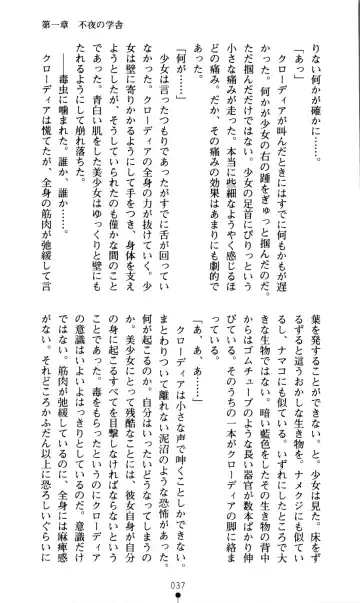 第一章　不夜の学舎
りない何かが確かに……。
あった。
クローディアが叫んだときにはすでに何もかもが遅
かった。何かが少女の右の踵をぎゅっと掴んだのだ。
ただ掴んだだけではない。少女の足首にぴりっという
小さな痛みが走った。本当に些細なようやく感じるほ
どの痛み。だか、その痛みの効果はあまりにも劇的で
あった。
「何が……」
少女は言ったつもりであったがすでに舌が回ってい
なかった。クローディアの全身の力が抜けていく。少
女は壁に寄りかかるようにして手をつき、身体を支え
ようとしたが、そうしていられたのも僅かな間のこと
であった。青白い肌をした美少女はゆっくりと壁にも
たれるように崩れ落ちた。
――毒虫に噛まれた。誰か、誰か……。
クローディアは慌てたが、全身の筋肉が弛緩して言
葉を発することができない。と、少女は見た。床をず
るずると這うおかしな生き物を。ナメクジにも似てい
るし、ナマコにも似ている。いずれにしたところで大
きな生物ではない。暗い藍色をしたその生物の背中
からはゴムチューブのような長い器官が数本ばかり伸
びている。そのうちの一本がクローディアの脚に絡ま
っている。
「あ、あ、あ……」
クローディアは小さな声で呻くことしかできない。
まとわりついて離れない泥沼のような恐怖があった。
何が起こるのか。自分はいったいどうなってしまうの
か。美少女にとって残酷なことには、彼女自身が自分
の身に起こるすべてを目撃しなければならないという
ことであった。毒をもらったというのにクローディア
の意識はいよいよはっきりとしているのだ。意識だけ
ではない。筋肉が弛緩しているのに、全身には麻痺感
がない。それどころかふだん以上に恐ろしいぐらいに
037